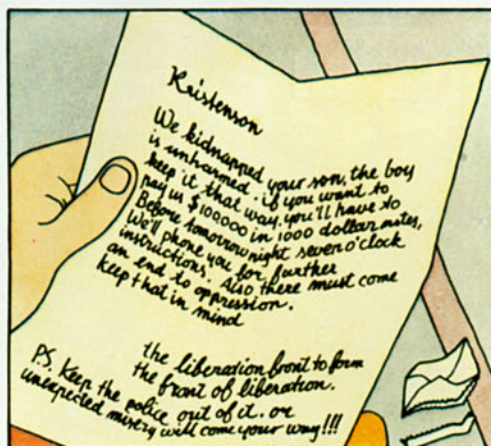 Kristenson
We kidnapped your son, the boy
is unharmed. if you want to
keep it that way. you'll have to
pay us $100.000 in 1000 dollar notes,
Before tomorrow night seven o'clock
We'll phone you for further
instructions. Also there must come
an end to oppression.
Keep that in mind
the liberation front to form
the front of liberation.
P.S. Keep the police out of it. or
unexpected misery will come your way!!!